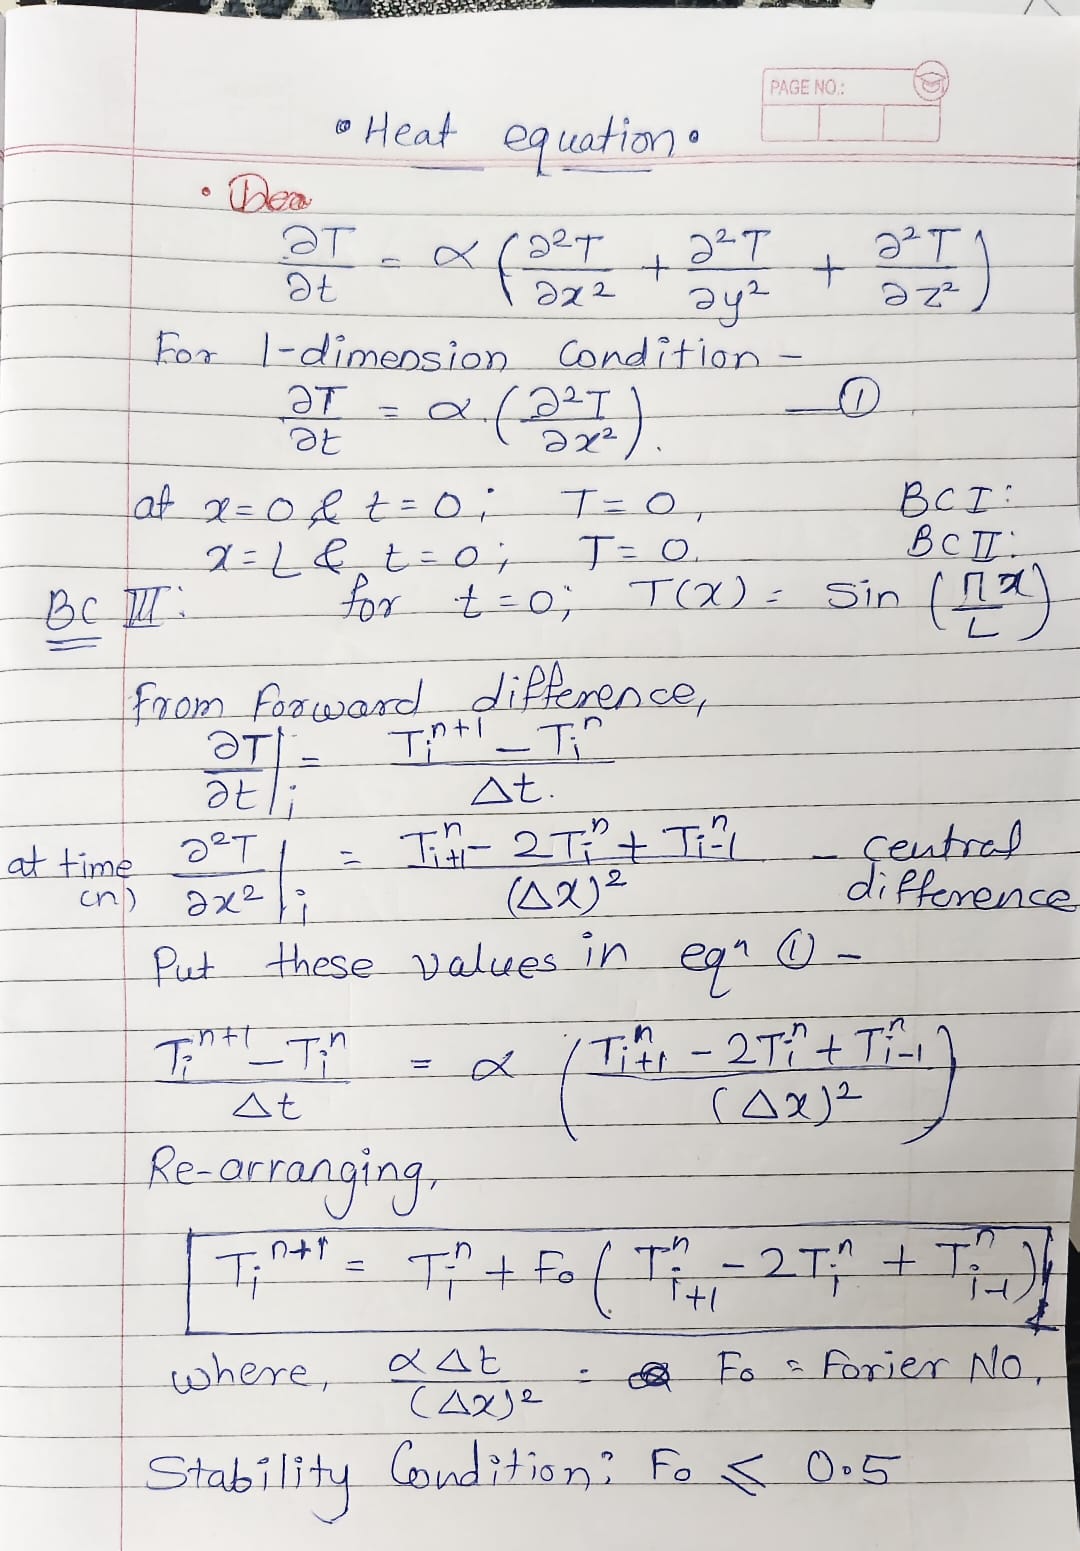 PAGE NO.:
• Heat equation •
• Dea
∂T/∂t = α (∂²T/∂x² + ∂²T/∂y² + ∂²T/∂z²)
For 1-dimension Condition -
∂T/∂t = α.(∂²T/∂x²). — ①
at x=0 & t=0; T=0, BC I:
x=L & t=0; T=0. BC II:
BC III: for t=0; T(x) = Sin (πx/L)
From Forward difference,
∂T/∂t|i = (Tiⁿ⁺¹ - Tiⁿ)/Δt.
at time (n) ∂²T/∂x²|i = (Tⁿi+1 - 2Tiⁿ + Tⁿi-1)/(Δx)² - central difference
Put these values in eqⁿ ① -
(Tiⁿ⁺¹ - Tiⁿ)/Δt = α ((Tⁿi+1 - 2Tiⁿ + Tⁿi-1)/(Δx)²)
Re-arranging,
Tiⁿ⁺¹ = Tiⁿ + Fo (Tⁿi+1 - 2Tiⁿ + Tⁿi-1)
where, αΔt/(Δx)² = Fo = Forier No.
Stability Condition: Fo ≤ 0.5